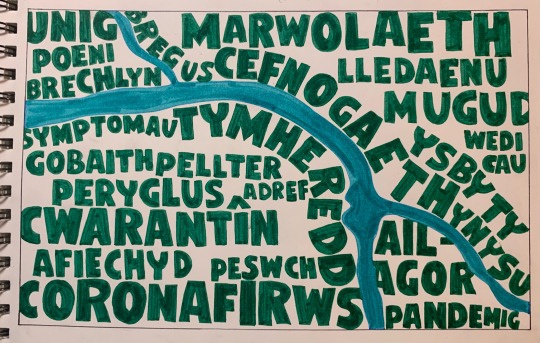 UNIG
BREGUS
MARWOLAETH
POENI
CEFNOGAETH
LLEDAENU
BRECHLYN
MUGUD
SYMPTOMAU
TYMHEREDD
YSBYTY
WEDI
CAU
GOBAITH
PELLTER
PERYGLUS
ADREF
YNYSU
CWARANTÎN
AIL-
AGOR
AFIECHYD
PESWCH
CORONAFIRWS
PANDEMIG